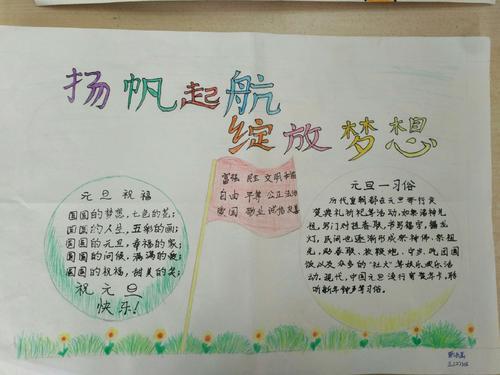 扬帆起航
绽放梦想
元旦祝福
圆圆的梦想，七色的花；
圆圆的人生，五彩的画；
圆圆的元旦，幸福的家；
圆圆的问候，满满的
圆圆的祝福，甜美的笑；
祝元旦
快乐！
富强 民主 文明 和谐
自由 平等 公正 法治
爱国 敬业 诚信 友善
元旦一习俗
历代皇朝都在元旦举行庆
贺典礼祈祀等活动，如祭诸神礼
祖，写门对挂春联，书写福字、舞龙
灯，民间也逐渐形成祭神佛、祭祖
先，贴春联、放鞭炮、守岁、吃团圆
饭以及众多的“社火”等娱乐欢乐活
动。现代，中国元旦流行寄贺年卡，聆
听新年钟声等习俗。